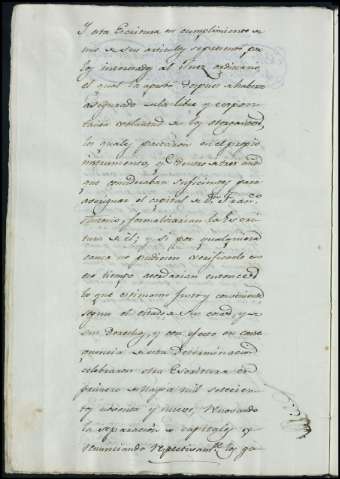 Y esta Escritura en cumplimiento de
uno de sus articulos se presentó, por
los interesados al Juez ordinario
el qual la aprobó despues de haberse
asegurado de la libre y espon-
tanea voluntad de los otorgantes,
los quales pactaron en el propio
instrumento, q.e dentro de tres años
que consideraban suficientes para
averiguar el capital de D.n Fran.co
Antonio, formalizarian la Escri-
tura de él; y si por qualquiera
causa no pudiesen verificarlo en
ese tiempo acordarian entonces
lo que estimasen justo y conveniente
segun el estado de sus cosas, y de
sus Derechos, y con efecto en conse-
quencia de esta Determinacion
celebraron otra Escritura en
primero de Mayo mil setecien-
tos ochenta y nueve,
la separacion de capitales y
renunciando respectivam.te los ga-